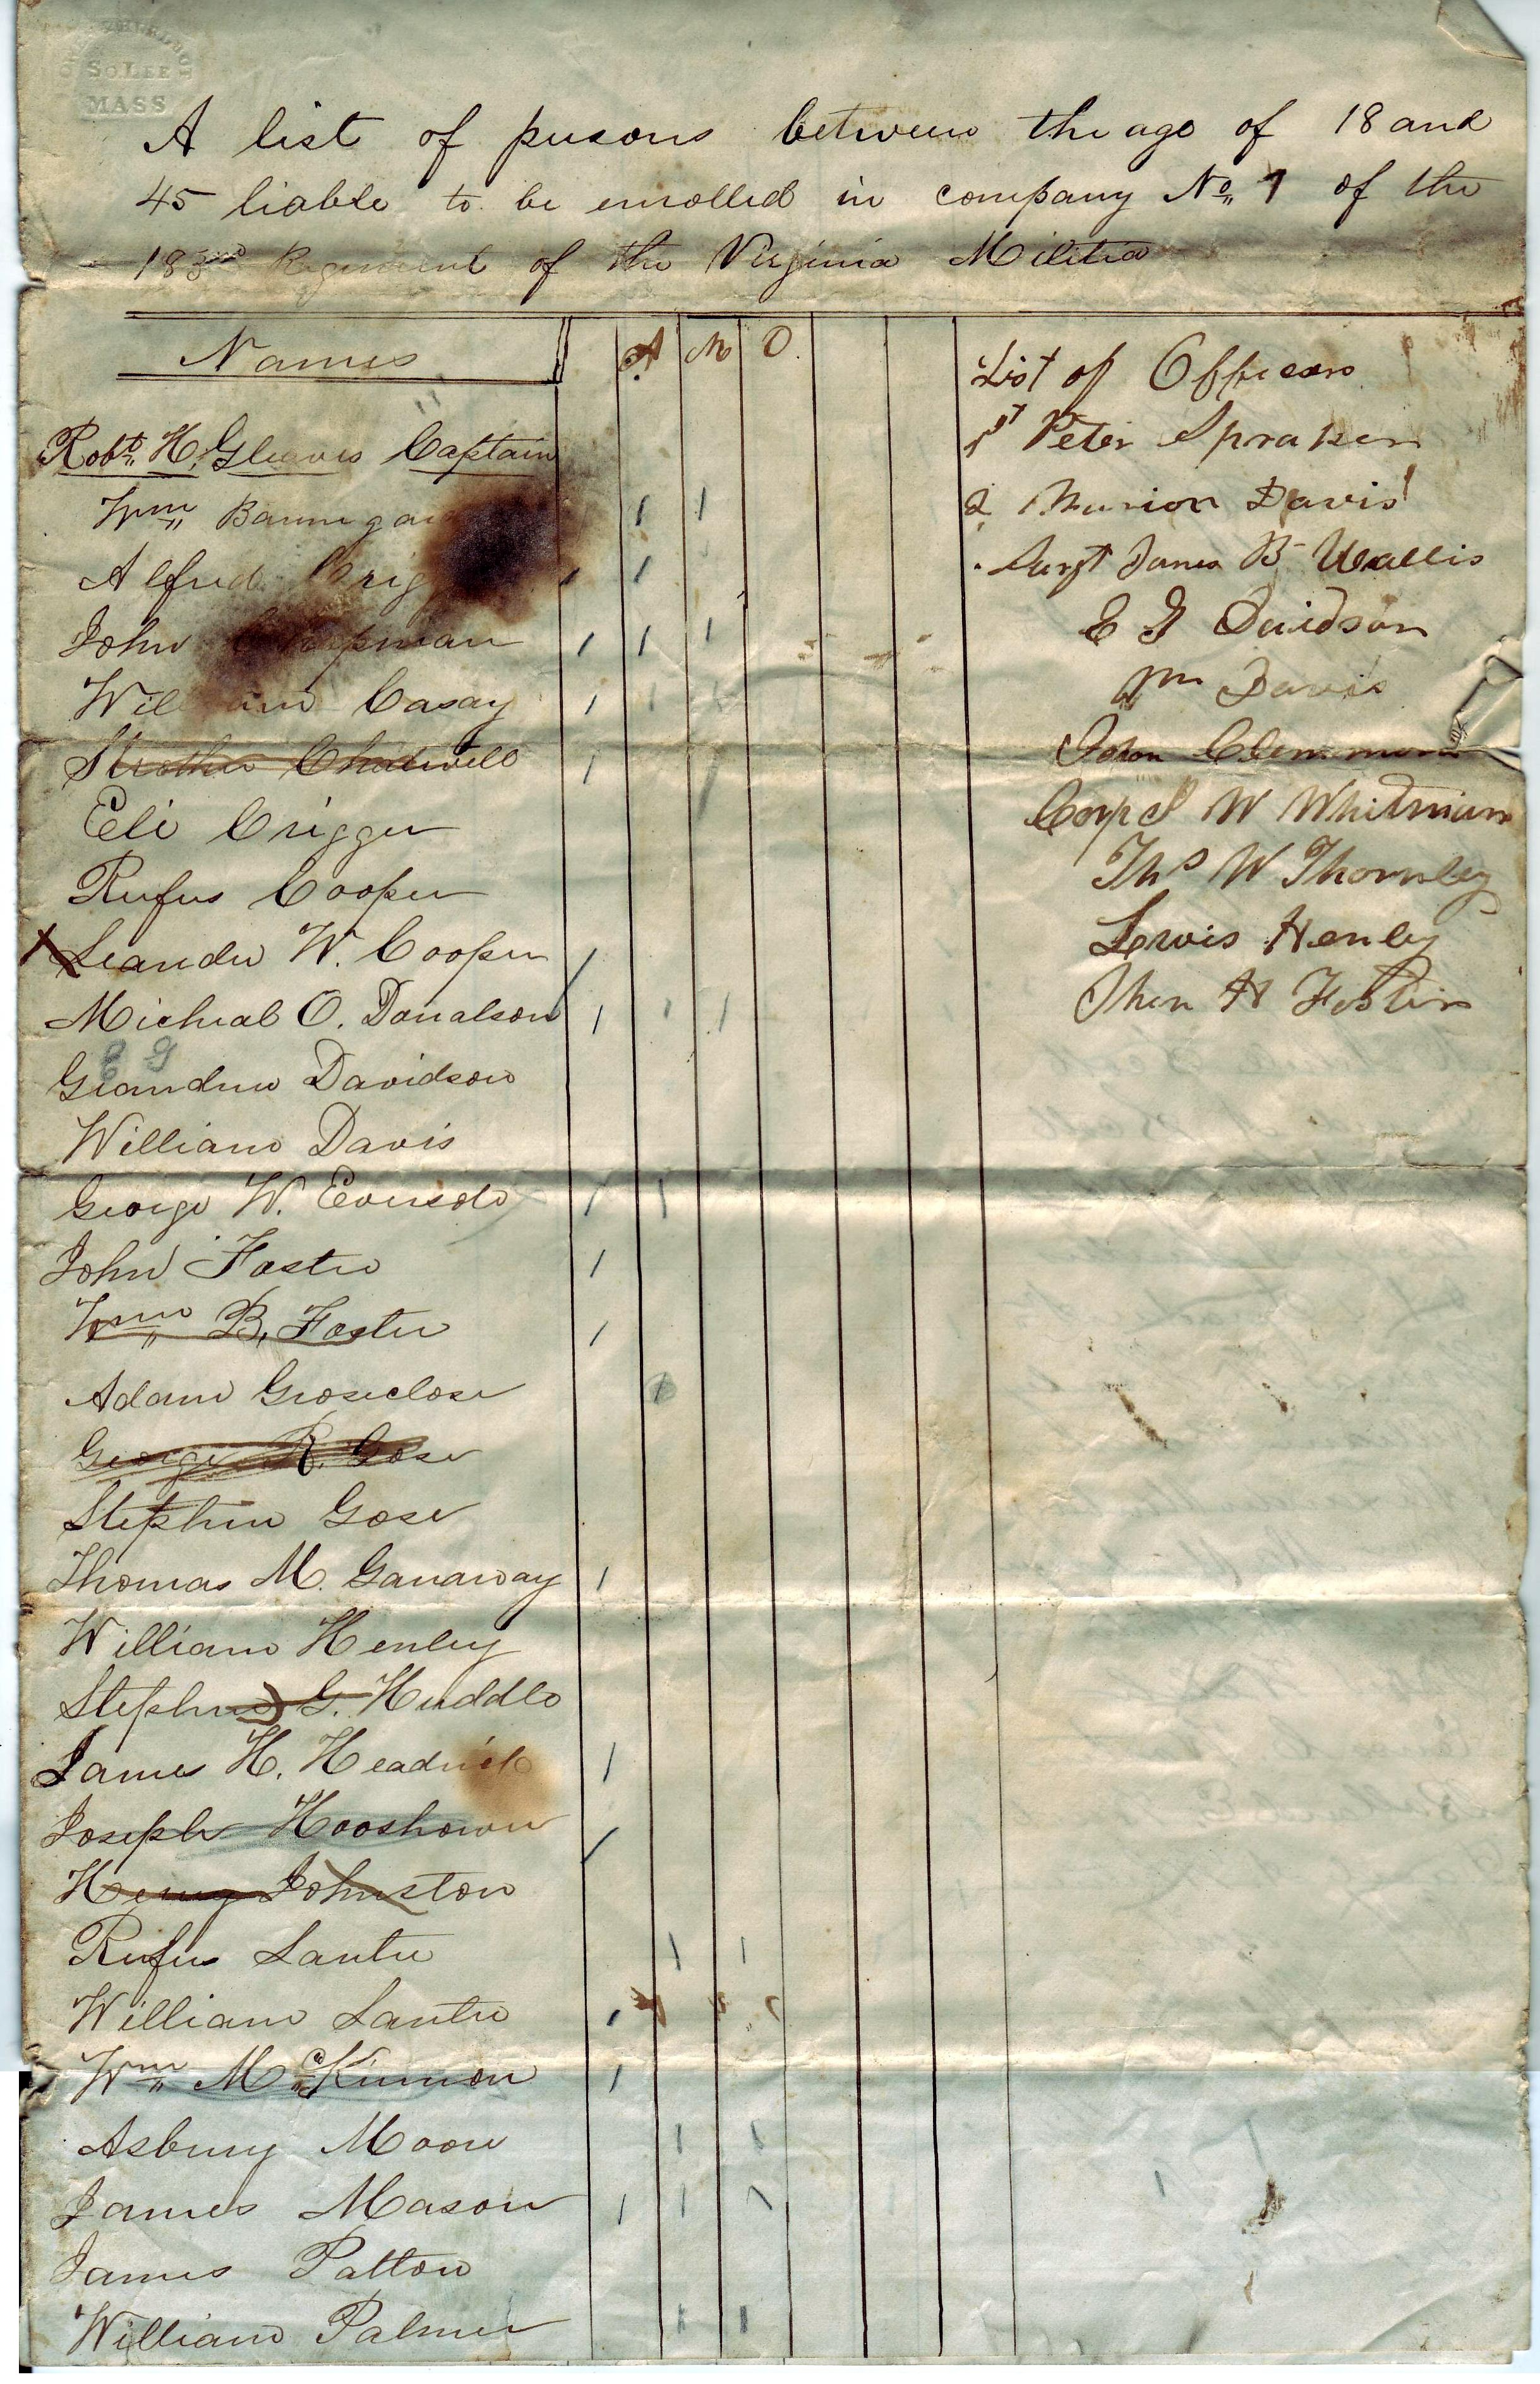 SO. LEE
MASS
A list of persons between the age of 18 and
45 liable to be enrolled in company No. 1 of the
Regiment of the Virginia Militia
Names
A M O
Robt. H. Gleaves Captain
Wm.
Alfred
John
William Casay
Strother Chatwell
Eli Crigger
Rufus Cooper
X Leander W. Cooper
Micheal O. Donalson
E G
Davidson
William Davis
George W. Eversole
John Foster
Wm. B. Foster
Adam Groseclose
George R. Gose
Stephen Gose
Thomas M. Ganaway
William Henley
Stephen G. Huddle
James H.
Joseph
Henry Johnston
Rufus Lanter
William Lanter
Wm. McKinnon
Asbury Moore
James Mason
James Patton
William Palmer
List of Officers
1st Peter Spraker
2 Marion Davis
Sargt James B Wallis
E G Davidson
Wm Davis
John Clemmons
Corpl S W Whitman
Ths W Thornley
Lewis Henley
H Foster